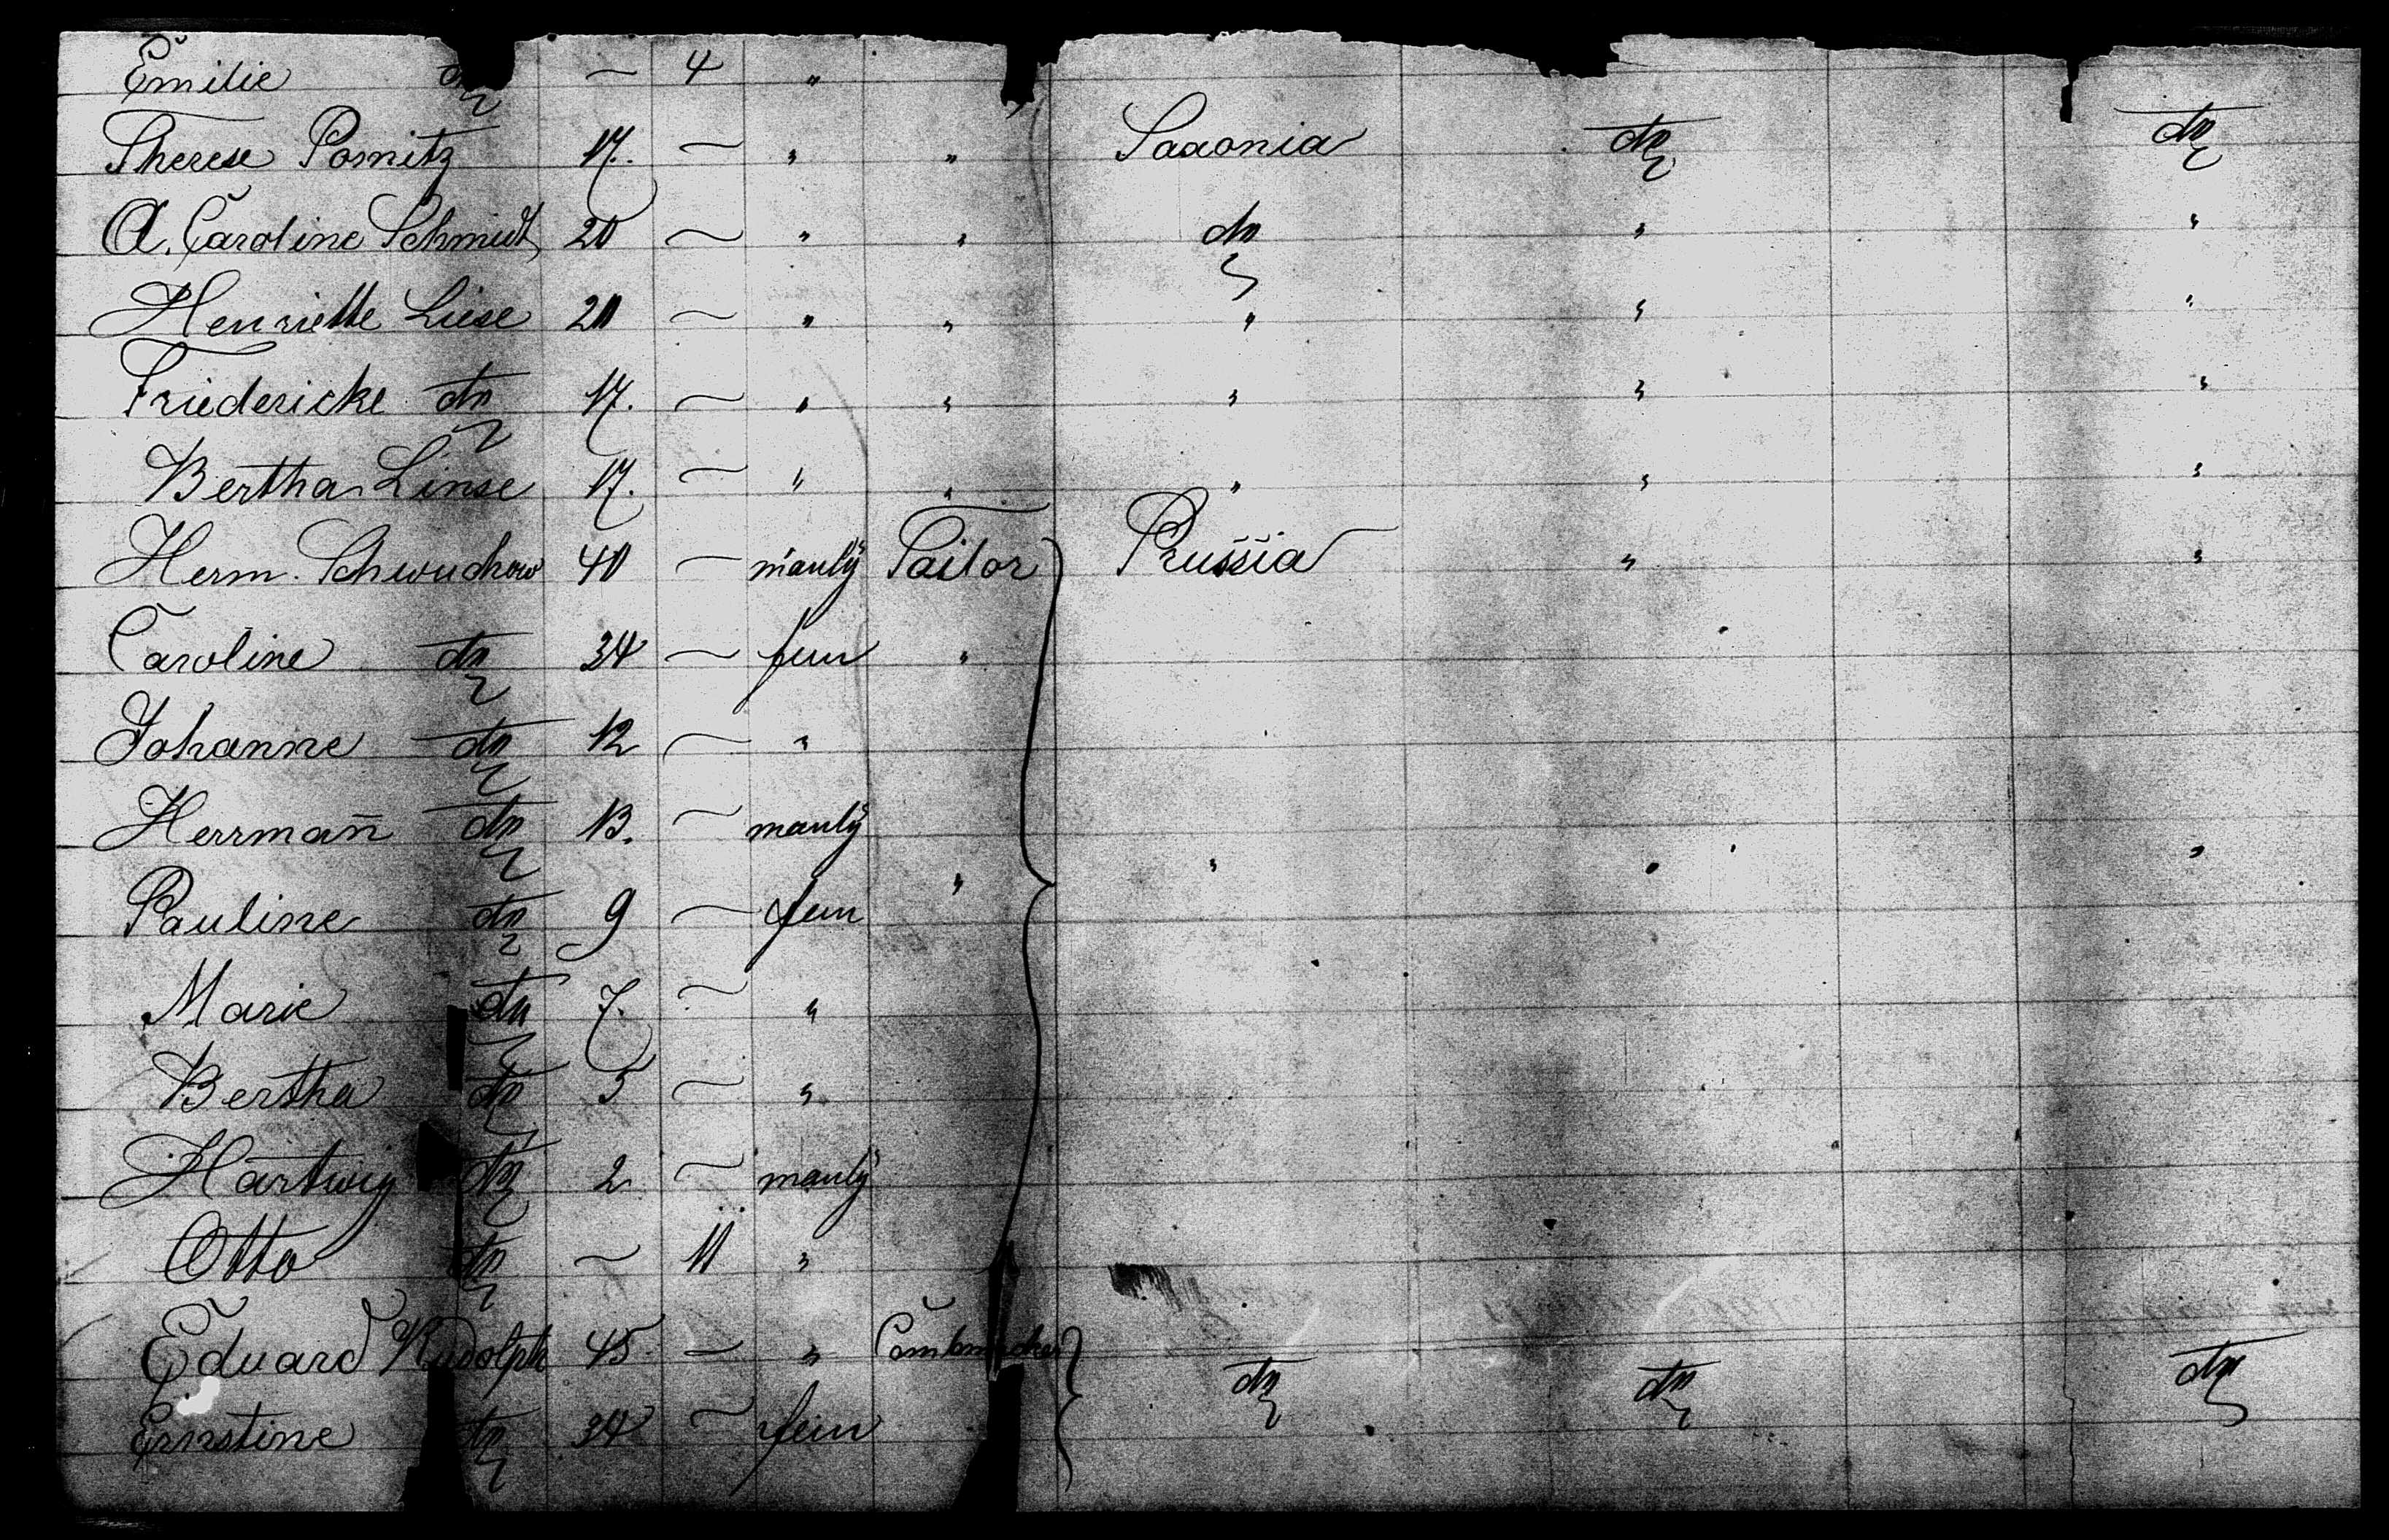 Emilie do — 4 "
Therese Pomitz 17. — " " Saxonia do do
A. Caroline Schmidt 20 — " " do " "
Henriette Liese 20 — " " " " "
Friedericke do 17. — " " " " "
Bertha Linse 17. — " " " " "
Herm. Schwuchow 40 — manly Tailor Prussia " "
Caroline do 34 — fem "
Johanne do 12 — "
Herrmañ do 13. — manly
" " " "
Pauline do 9 — fem
Marie do 7. — "
Bertha do 5 — "
Hartwig do 2 — manly
Otto do — 11 "
Eduard Rudolph 45 — " do do do
Ernstine do 34 — fem